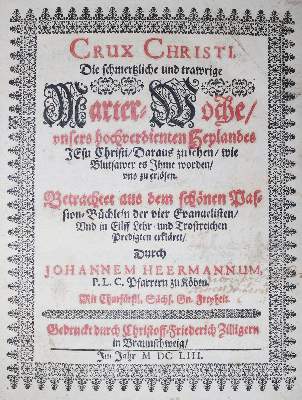 CRUX CHRISTI.
Die schmertzliche und trawrige
Marter-Woche/
vnsers hochverdienten Heylandes
JEsu Christi/ Daraus zu sehen/ wie
Blutsawer es Jhme worden/
uns zu erlösen.
Betrachtet aus dem schönen Pas-
sion-Büchlein der vier Evangelisten/
Und in Eilff Lehr- und Trostreichen
Predigten erkläret/
Durch
JOHANNEM HEERMANNUM,
P. L. C. Pfarrern zu Köben.
Mit Churfürstl. Sächs. Gn. Freyheit.
Gedruckt durch Christoff-Friederich Zilligern
in Braunschweig/
Im Jahr M DC LIII.